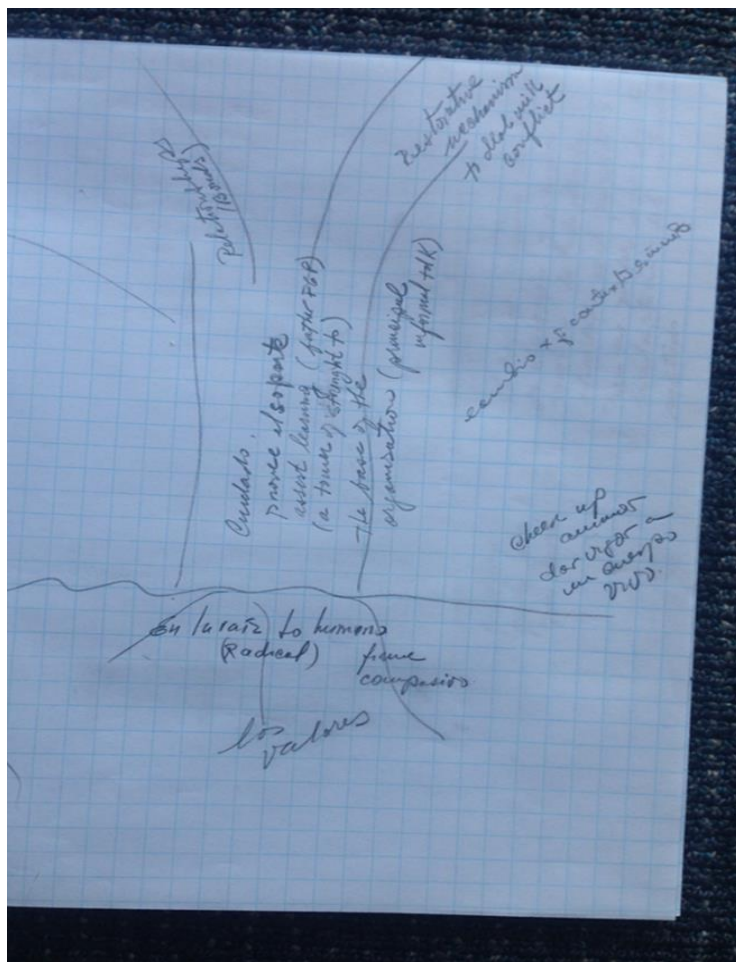 Relationships
(Bonds)
Restorative
mechanism
to deal with
conflict
Cuidado.
provee el soporte
assist learning (father FGR)
(a tower of strenght to)
the base of the
organisation (principal
informal talk)
cambio x el contexto
cheer up
animar
dar vigor a
un cuerpo
vivo.
en la raíz to humans
(Radical)
firme
compasivo
los
valores